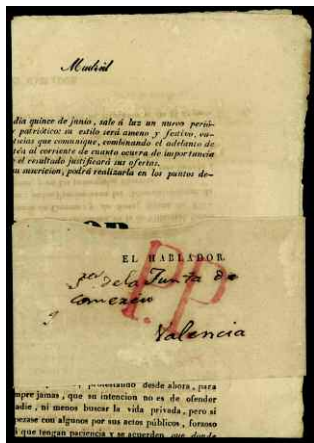 Madrid
dia quince de junio, sale á luz un nuevo perió-
patriótico: su estilo será ameno y festivo, va-
ticias que comunique, combinando el adelanto de
al corriente de cuanto ocurra de importancia
e el resultado justificará sus ofertas.
su suscricion, podrá realizarla en los puntos de-
EL HABLADOR.
P.P
de la Junta de
comercio
Valencia
protestando desde ahora, para
mpre jamas, que su intencion no es de ofender
adie, ni menos buscar la vida privada, pero si
pezase con algunos por sus actos públicos, forzoso
á que tengan paciencia y se acuerden que donde